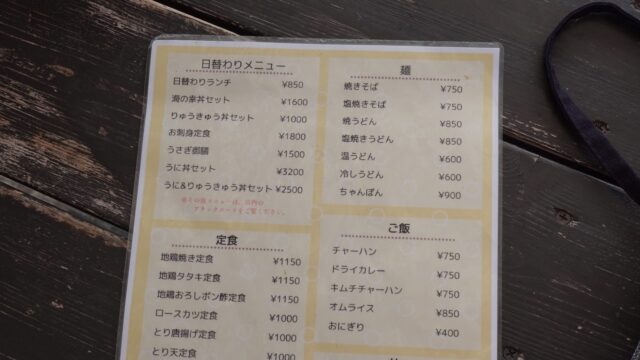 日替わりメニュー
日替わりランチ ¥850
海の幸丼セット ¥1600
りゅうきゅう丼セット ¥1000
お刺身定食 ¥1800
うさぎ御膳 ¥1500
うに丼セット ¥3200
うに&りゅうきゅう丼セット ¥2500
ブラックボードをご覧ください。
定食
地鶏焼き定食 ¥1150
地鶏タタキ定食 ¥1150
地鶏おろしポン酢定食 ¥1150
ロースカツ定食 ¥1000
とり唐揚げ定食 ¥1000
とり天定食 ¥1000
麺
焼きそば ¥750
塩焼きそば ¥750
焼うどん ¥850
塩焼きうどん ¥850
温うどん ¥600
冷しうどん ¥600
ちゃんぽん ¥900
ご飯
チャーハン ¥750
ドライカレー ¥750
キムチチャーハン ¥750
オムライス ¥850
おにぎり ¥400